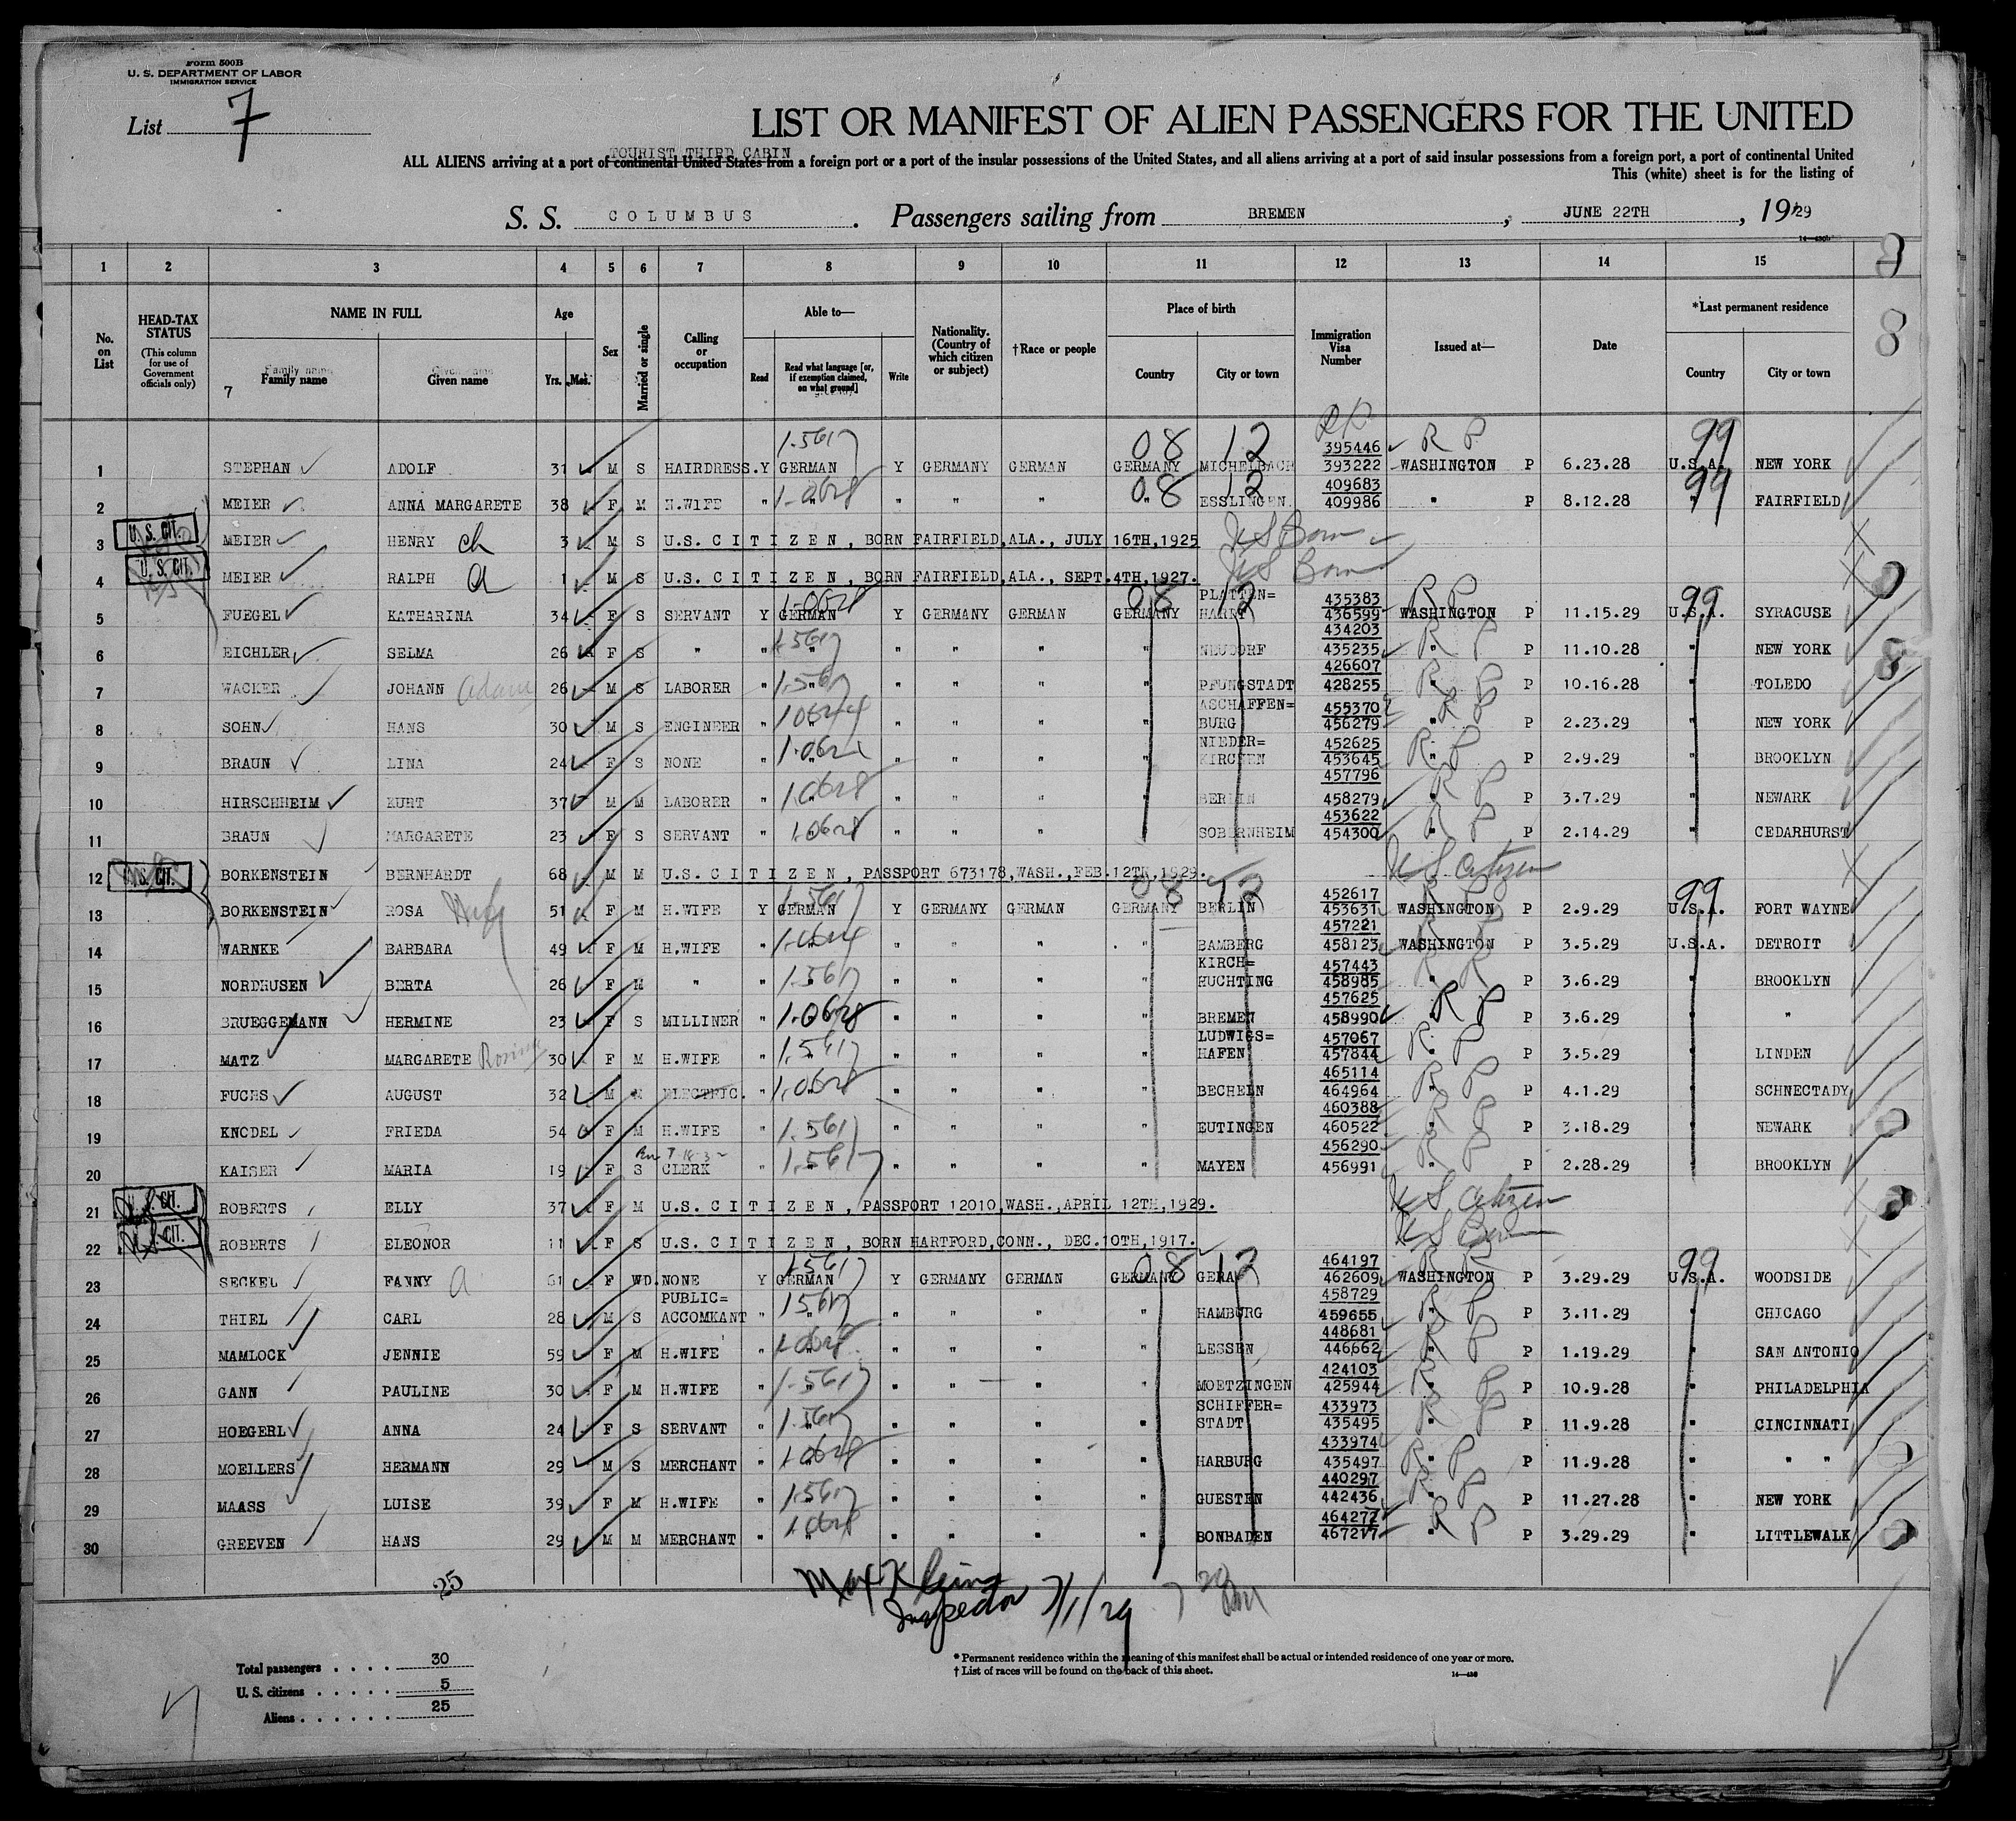 Form 500B
U. S. DEPARTMENT OF LABOR
IMMIGRATION SERVICE
List 7
LIST OR MANIFEST OF ALIEN PASSENGERS FOR THE UNITED
TOURIST THIRD CABIN
ALL ALIENS arriving at a port of continental United States from a foreign port or a port of the insular possessions of the United States, and all aliens arriving at a port of said insular possessions from a foreign port, a port of continental United
This (white) sheet is for the listing of
S. S. COLUMBUS. Passengers sailing from BREMEN, JUNE 22TH, 1929
1 2 3 4 5 6 7 8 9 10 11 12 13 14 15
No. on List
HEAD-TAX STATUS (This column for use of Government officials only)
NAME IN FULL Family name Given name
7
Age Yrs. Mos.
Sex
Married or single
Calling or occupation
Able to— Read Read what language [or, if exemption claimed, on what ground] Write
Nationality. (Country of which citizen or subject)
†Race or people
Place of birth Country City or town
Immigration Visa Number
Issued at—
Date
*Last permanent residence Country City or town
1 STEPHAN ADOLF 31 M S HAIRDRESS. Y GERMAN Y GERMANY GERMAN GERMANY MICHELBACH 395446 393222 WASHINGTON P 6.23.28 U.S.A. NEW YORK
2 MEIER ANNA MARGARETE 38 F M H.WIFE " " " " " " ESSLINGEN 409683 409986 " P 8.12.28 " FAIRFIELD
3 U. S. CIT. MEIER HENRY 3 M S U.S. CITIZEN, BORN FAIRFIELD,ALA., JULY 16TH,1925 US Born
4 U. S. CIT. MEIER RALPH 1 M S U.S. CITIZEN, BORN FAIRFIELD,ALA., SEPT.4TH,1927. US Born
5 FUEGEL KATHARINA 34 F S SERVANT Y GERMAN Y GERMANY GERMAN GERMANY PLATTEN= HARDT 435383 436599 WASHINGTON P 11.15.29 U.S.A. SYRACUSE
6 EICHLER SELMA 26 F S " " " " " " " NEUDORF 434203 435235 " P 11.10.28 " NEW YORK
7 WACKER JOHANN Adam 26 M S LABORER " " " " " " PFUNGSTADT 426607 428255 " P 10.16.28 " TOLEDO
8 SOHN HANS 30 M S ENGINEER " " " " " " ASCHAFFEN= BURG 455370 456279 " P 2.23.29 " NEW YORK
9 BRAUN LINA 24 F S NONE " " " " " " NIEDER= KIRCHEN 452625 453645 " P 2.9.29 " BROOKLYN
10 HIRSCHHEIM KURT 37 M M LABORER " " " " " " BERLIN 457796 458279 " P 3.7.29 " NEWARK
11 BRAUN MARGARETE 23 F S SERVANT " " " " " " SOBERNHEIM 453622 454300 " P 2.14.29 " CEDARHURST
12 U. S. CIT. BORKENSTEIN BERNHARDT 68 M M U.S. CITIZEN, PASSPORT 673178,WASH.,FEB.12TH,1929. US Citizen
13 BORKENSTEIN ROSA Wife 51 F M H.WIFE Y GERMAN Y GERMANY GERMAN GERMANY BERLIN 452617 453631 WASHINGTON P 2.9.29 U.S.A. FORT WAYNE
14 WARNKE BARBARA 49 F M H.WIFE " " " " " " BAMBERG 457221 458123 WASHINGTON P 3.5.29 U.S.A. DETROIT
15 NORDHUSEN BERTA 26 F M " " " " " " " KIRCH= HUCHTING 457443 458985 " P 3.6.29 " BROOKLYN
16 BRUEGGEMANN HERMINE 23 F S MILLINER " " " " " " BREMEN 457625 458990 " P 3.6.29 " "
17 MATZ MARGARETE Rosina 30 F M H.WIFE " " " " " " LUDWIGS= HAFEN 457067 457844 " P 3.5.29 " LINDEN
18 FUCHS AUGUST 32 M M ELECTRIC. " " " " " " BECHELN 465114 464964 " P 4.1.29 " SCHNECTADY
19 KNODEL FRIEDA 54 F M H.WIFE " " " " " " EUTINGEN 460388 460522 " P 3.18.29 " NEWARK
20 KAISER MARIA 19 F S CLERK " " " " " " MAYEN 456290 456991 " P 2.28.29 " BROOKLYN
21 U. S. CIT. ROBERTS ELLY 37 F M U.S. CITIZEN, PASSPORT 12010,WASH.,APRIL 12TH,1929. US Citizen
22 U. S. CIT. ROBERTS ELEONOR 11 F S U.S. CITIZEN, BORN HARTFORD,CONN., DEC.10TH,1917. US Born
23 SECKEL FANNY 61 F WD. NONE Y GERMAN Y GERMANY GERMAN GERMANY GERA 464197 462609 WASHINGTON P 3.29.29 U.S.A. WOODSIDE
24 THIEL CARL 28 M S PUBLIC= ACCOMKANT " " " " " " HAMBURG 458729 459655 " P 3.11.29 " CHICAGO
25 MAMLOCK JENNIE 59 F M H.WIFE " " " " " " LESSEN 448681 446662 " P 1.19.29 " SAN ANTONIO
26 GANN PAULINE 30 F M H.WIFE " " " " " " MOETZINGEN 424103 425944 " P 10.9.28 " PHILADELPHIA
27 HOEGERL ANNA 24 F S SERVANT " " " " " " SCHIFFER= STADT 433973 435495 " P 11.9.28 " CINCINNATI
28 MOELLERS HERMANN 29 M S MERCHANT " " " " " " HARBURG 433974 435497 " P 11.9.28 " " "
29 MAASS LUISE 39 F M H.WIFE " " " " " " GUESTEN 440297 442436 " P 11.27.28 " NEW YORK
30 GREEVEN HANS 29 M M MERCHANT " " " " " " BONBADEN 464277 467217 " P 3.29.29 " LITTLEWALK
25
Max Inspector 7/1/29
* Permanent residence within the meaning of this manifest shall be actual or intended residence of one year or more.
† List of races will be found on the back of this sheet.
Total passengers . . . . 30
U. S. citizens . . . . . 5
Aliens . . . . . . 25